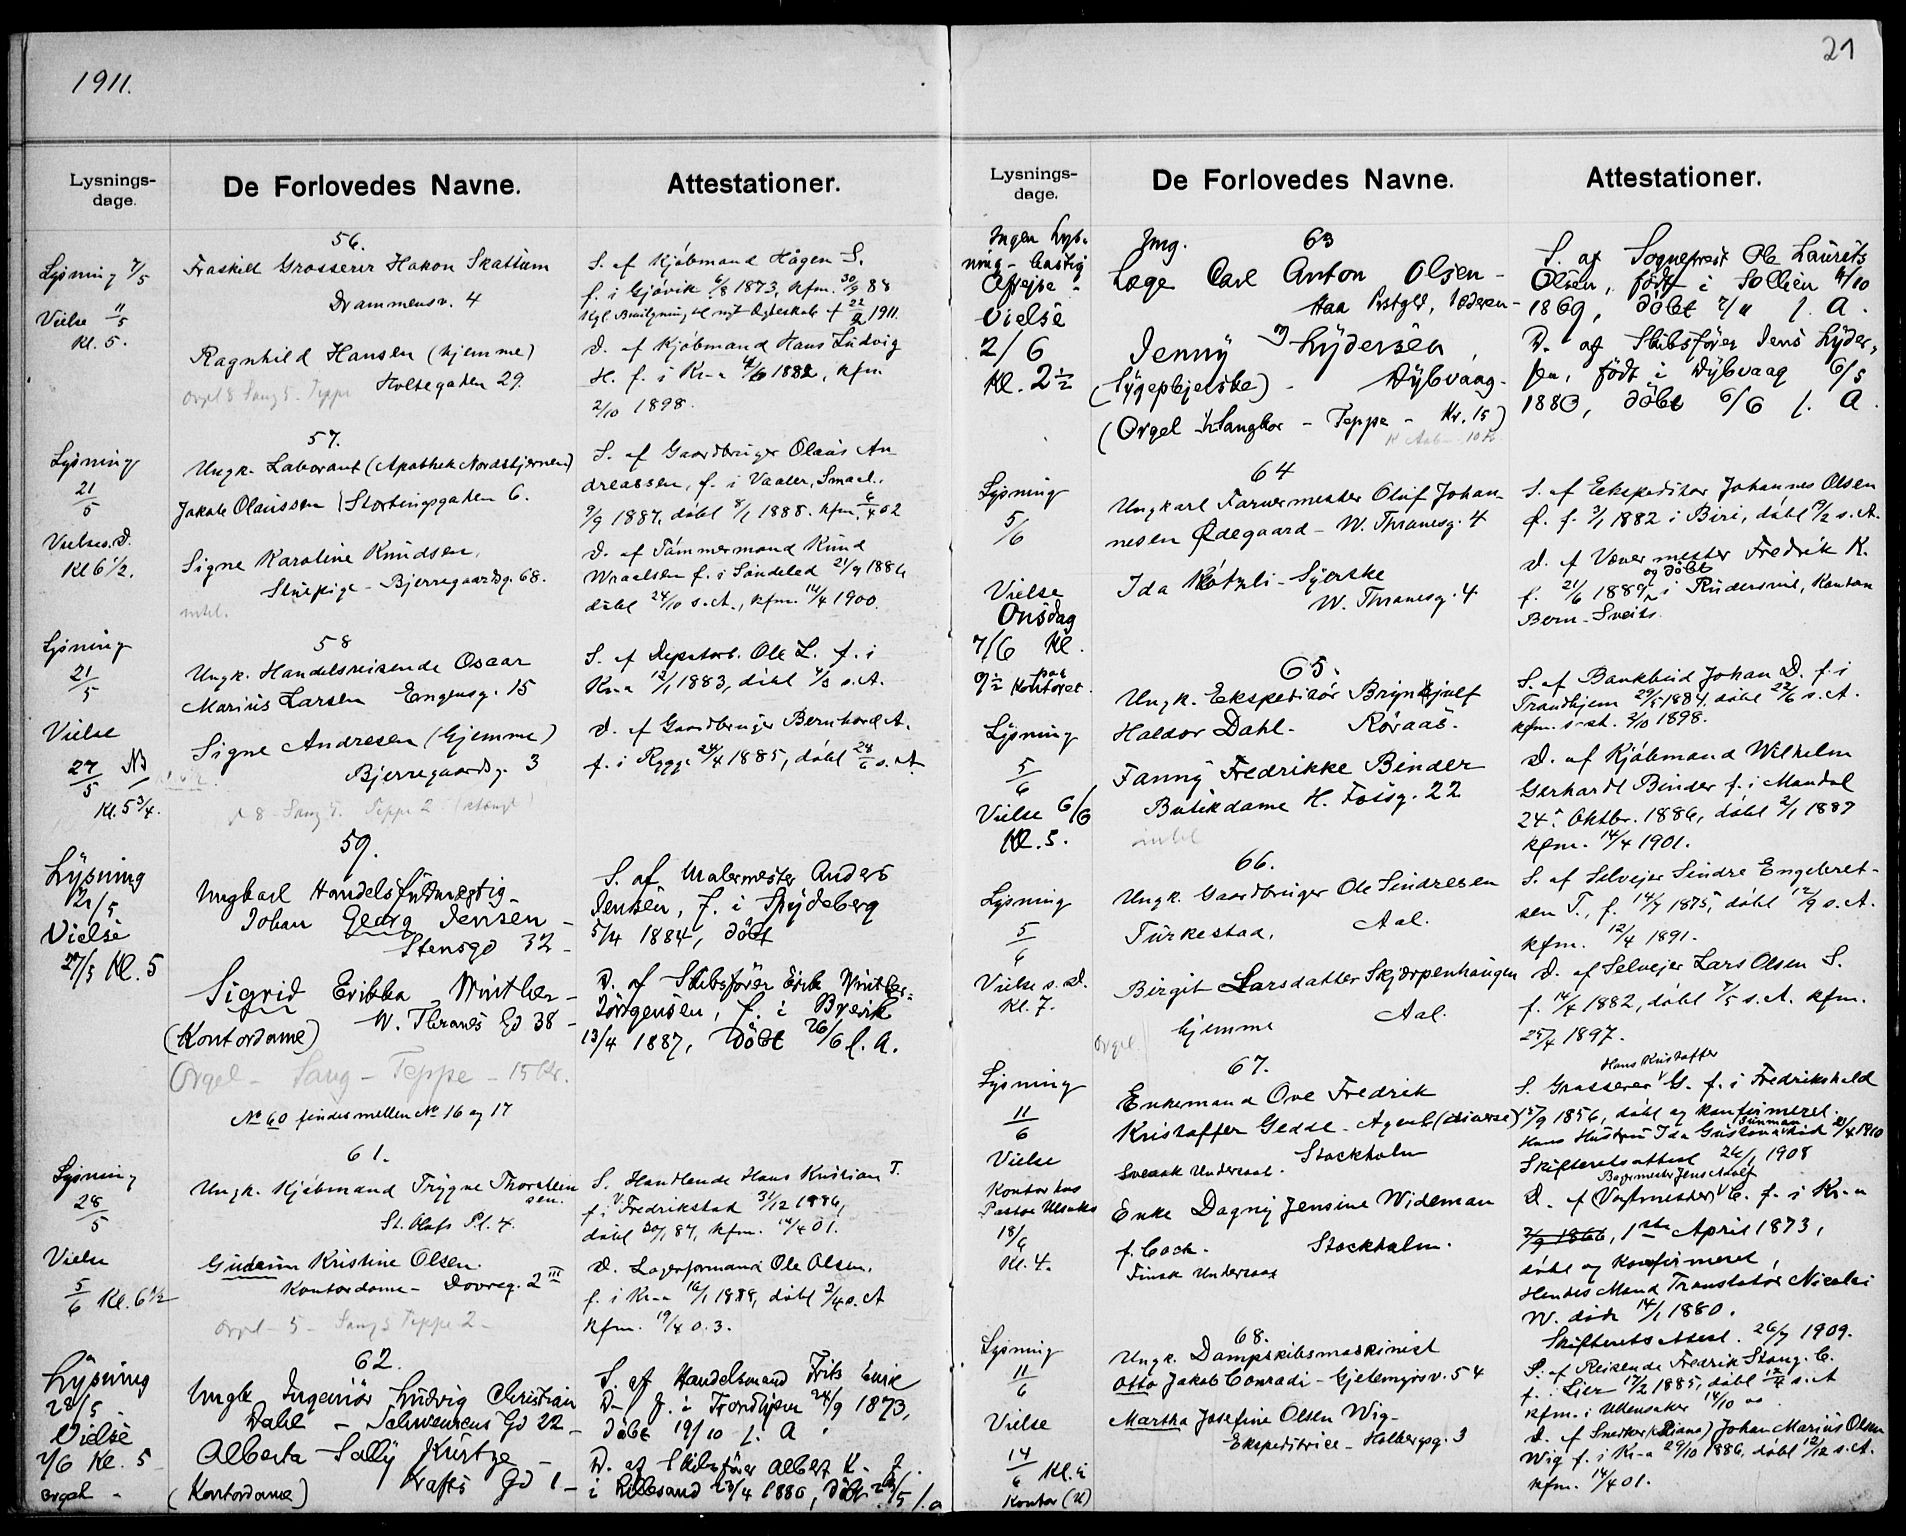 1911.
Lysnings-
dage.
De Forlovedes Navne.
Attestationer.
56.
Lysning 7/5
Vielse 11/5
Kl. 5.
Fraskilt Grosserer Hakon Skattum
Drammensv. 4
Ragnhild Hansen (hjemme)
Holtegaten 29.
Orgel 8 Sang 5. Teppe
S. af Kjøbmand Hågen S.
f. i Gjøvik 6/8 1873, kfm. 30/9 88
Kgl. Bevilgning til nyt Ægteskab af 22/2 1911.
D. af Kjøbmand Hans Ludvig
H. f. i Kr-a 1882, kfm
2/10 1898.
57.
Lysning
21/5
Vielse s. D.
Kl 6 1/2.
Ungk. Laborant (Apothek Nordstjernen)
Jakob Olaussen Stortingsgaten 6.
Signe Karoline Knudsen,
Stuepige - Bjerregaardsg. 68.
intet.
S. af Gaardbruger Olaus An-
dreassen, f. i Vaaler, Smaal.
9/9 1887, døbt 8/1 1888. kfm. 6/4 02
D. af Tømmermand Knud
Wraalsen f. i Søndeled 21/9 1884
døbt 24/10 s. A., kfm. 14/4 1900.
58
Lysning
21/5
Vielse
27/5
Kl. 5 3/4.
Ungk. Handelsreisende Oscar
Marius Larsen Engensg. 15
Signe Andresen (hjemme)
Bjerregaardsg. 3
8 - Sang 5. Teppe 2
S. af Repslarb. Ole L. f. i
Kr-a 12/1 1883, døbt 4/3 s. A.
D. af Gaardbruger Bernhard A.
f. i Rygge 24/4 1885, døbt 24/6 s. A.
59.
Lysning
21/5
Vielse
27/5 Kl. 5
Ungkarl Handelsfuldmægtig
Johan Georg Jensen -
Stensgd 32 -
Sigrid Erikka Winther -
(Kontordame) W. Thranes Gd 38 -
Orgel - Sang - Teppe - 15 Kr.
S. af Malermester Anders
Jensen, f. i Spydeberg
5/4 1884, døbt
D. af Skibsfører Erik Winther-
Jørgensen, f. i Brevik
13/4 1887, døbt 26/6 s. A.
No 60 findes mellem No 16 og 17
61.
Lysning
28/5
Vielse
5/6 Kl. 6 1/2
Ungk. Kjøbmand Trygve Thorstein
sen.
St. Olafs Pl. 4.
Gudrun Kristine Olsen.
Kontordame - Dovreg. 2 III
Orgel - 5 - Sang 5 Teppe 2 -
S. Handlende Hans Kristian T.
f. i Fredrikstad 31/12 1886,
døbt 30/1 87, kfm. 14/4 01.
D. Lagerformand Ole Olsen.
f. i Kr-a 16/1 1888, døbt 2/4 s. A
kfm. 19/4 03.
62.
Lysning
28/5
Vielse
2/6 Kl. 5
Orgel -
Ungk Ingeniør Ludvig Christian
Dahl - Schwensens Gd 22 -
Alberta Sally Kurtze -
(Kontordame) Krafts Gd 1 -
S. af Handelsmand Frits Emil
D- f. i Trondhjem 24/9 1873,
døbt 19/10 s. A
D. af Skibsfører Albert K- f.
i Lillesand 23/4 1880, døbt s. A
21
Lysnings-
dage.
De Forlovedes Navne.
Attestationer.
63
Ingen Lys-
ning - hastig
Afrejse -
Vielse
2/6
Kl. 2 1/2
Ung.
Læge Carl Anton Olsen -
Aaa Postgd, Vederen-
Jenny Lydersen,
(Sygepleierske) - Dybvaag -
(Orgel - Sangkor - Teppe - Kr. 15)
S. af Sogneprest Ole Laurits
Olsen, født i Sollien 4/10
1869, døbt s. A.
D. af Skibsfører Jens Lyder-
sen, født i Dybvaag 6/5
1880, døbt 6/6 s. A.
64
Lysning
5/6
Vielse
Onsdag
7/6 Kl.
9 1/2 paa
Kontoret.
Ungkarl Farvermester Oluf Johan-
nesen Ødegaard - W. Thranesg. 4
Ida Rötzli - Syerske
W. Thranesg. 4
S. af Ekspeditør Johannes Olsen
Ø. f. 3/1 1882 i Biri, døbt 9/2 s. A.
D. af Vævermester Fredrik R.
f. 21/6 1889 og døbt i Rüderswil, Kanton
Bern - Sveits.
65.
Lysning
5/6
Vielse 6/6
Kl. 5.
Ungk. Ekspeditør Brynhjulf
Haldor Dahl. Røraas.
Fanny Fredrikke Binder
Butikdame H. Fossg. 22
intet
S. af Bankbud Johan D. f. i
Trondhjem 29/5 1884, døbt 22/6 s. A.
kfm. s. st. 2/10 1898.
D. af Kjøbmand Wilhelm
Gerhardt Binder f. i Mandal
24. Oktbr. 1886, døbt 2/1 1887
kfm. 14/4 1901.
66.
Lysning
5/6
Vielse s. D.
Kl. 7.
Ungk. Gaardbruger Ole Sindresen
Turkestad, Aal.
Birgit Larsdatter Skjærpenhaugen
hjemme Aal.
Orgel.
S. af Selvejer Sindre Engebret-
sen T., f. 14/7 1875, døbt 12/9 s. A.
kfm. 12/4 1891.
D. af Selvejer Lars Olsen S.
f. 14/4 1882, døbt 7/5 s. A. kfm.
25/4 1897.
67.
Lysning
11/6
Vielse
Kontor hos
Pastor
18/6
Kl. 4.
Enkemand Ove Fredrik
Kristoffer Gedde - Agent (diverse)
Svensk Undersaat. Stockholm
Enke Dagny Jensine Wideman
f. Coch. Stockholm.
Finsk Undersaat
Hans Kristoffer
S. Grosserer G. f. i Fredrikshald
15/9 1856, døbt og konfirmeret.
Hans Hustru Ida Gustava død 21/4 1910
Skifteretsattest 1908
Bagermester Jens Adolf
D. af Vagtmester C. f. i Kr-a
7/9 1866, 1ste April 1873,
døbt og konfirmeret,
Hendes Mand Translatør Nicolai
W. døde 14/1 1880.
Skifterets Attest. 26/7 1909.
68.
Lysning
11/6
Vielse
14/6 Kl. 2
Kontor (U)
Ungk. Dampskibsmaskinist
Otto Jakob Conradi - Gjetemyrsv. 54
Martha Josefine Olsen Wig -
Ekspeditrice - Holbergsg. 3
S. af Reisende Fredrik Stang C.
f. i Lier 17/2 1885, døbt s. A
kfm. i Ullensaker 14/10 00
D. af Snedker (Piano) Johan Marius Olsen
Wig f. i Kr-a 29/10 1886, døbt 12/12 s. A.
kfm. 14/4 01.